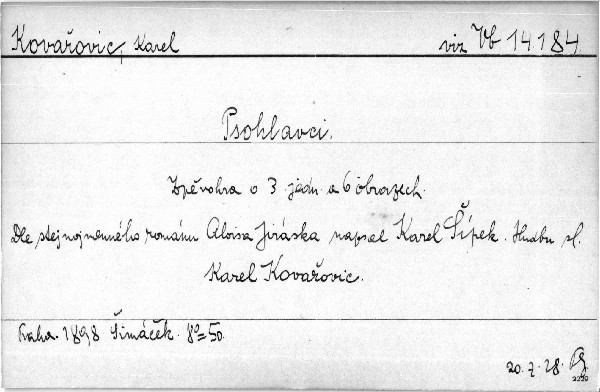 Kovařovic, Karel viz Vb 14184
Psohlavci.
Zpěvohra o 3 jedn. a 6 obrazech.
Dle stejnojmenného románu Aloisa Jiráska napsal Karel Šípek. Hudbu sl.
Karel Kovařovic.
Praha. 1898 Šimáček. 8°= 50.
20. 7. 28.